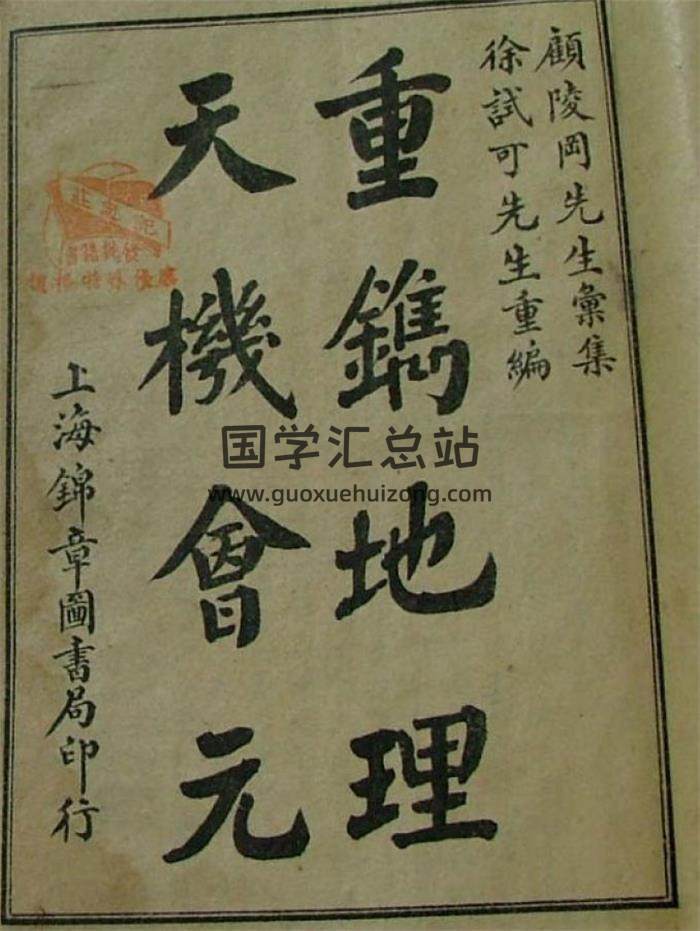 顧陵岡先生彙集
徐試可先生重編
重鐫地理
天機會元
上海錦章圖書局印行
国学汇总站
www.guoxuehuizong.com